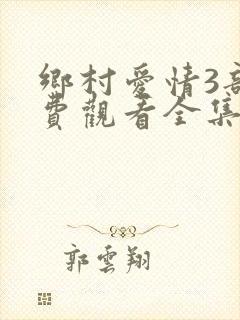 鄉村愛情3
費觀看全集
郭雲翔